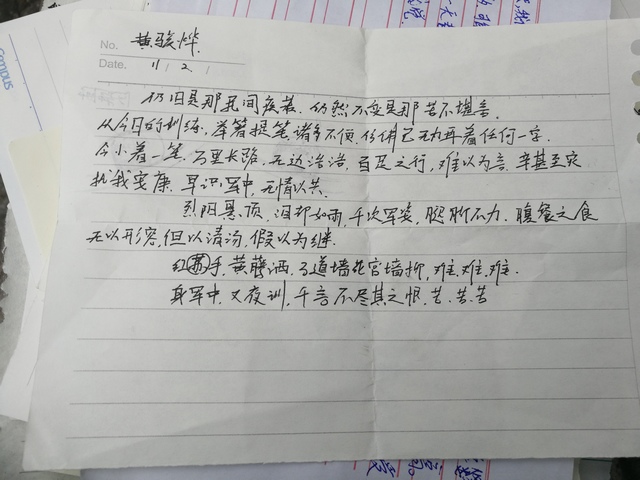 No. 黄骏烨.
Date. 11 / 2 /
仍旧是那民间疾苦, 仍然不变是那苦不堪言.
从今日的训练, 举箸提笔, 诸多不便, 仿佛已无力再着任何一字.
今小着一笔, 万里长路, 无边浩浩, 百足之行, 难以为言, 辛甚至灾
扰我安康, 早识军中, 无情以共.
烈阳悬顶, 泪却如雨, 千次军姿, 腿断不力, 腹餐之食
无以形容, 但以清汤, 假以为继.
红酥手, 黄藤酒, 弓道墙花宫墙柳, 难. 难. 难.
身军中, 又夜训, 千言不尽其之恨, 苦. 苦. 苦
Campus